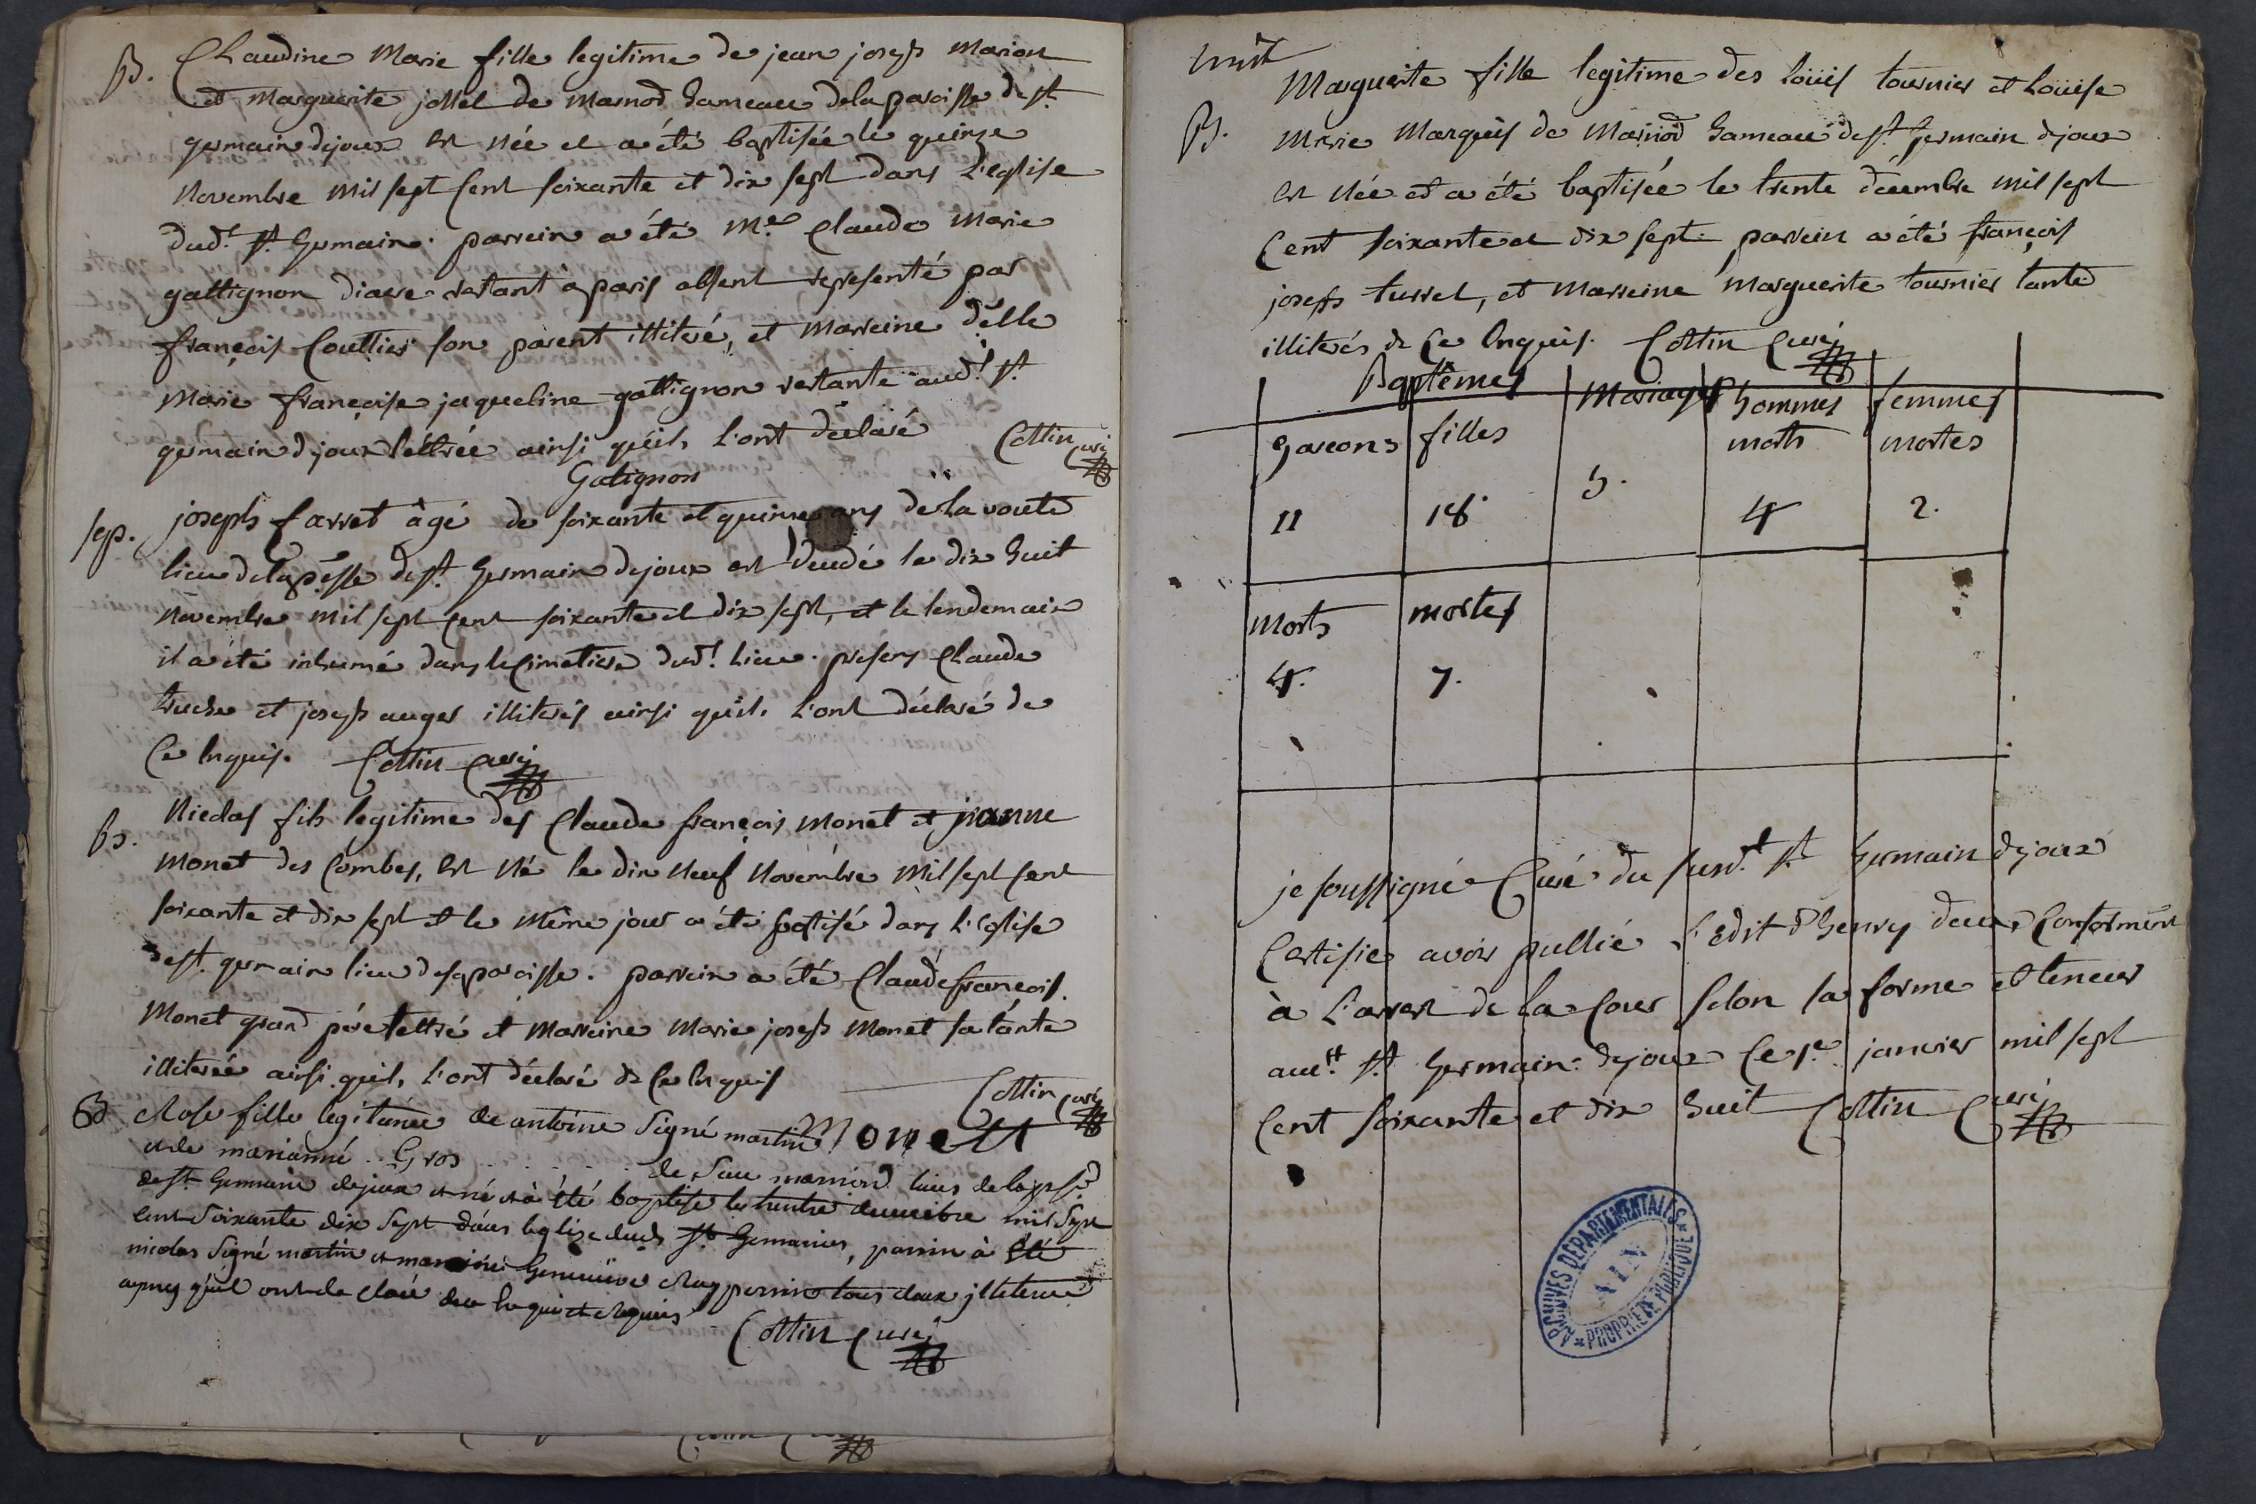 B. Claudine Marie fille legitime de jean joseph Marion
et Marguerite jollet de Marnod hameau de la paroisse de st
germain dejoux est née et a été baptisée le quinze
Novembre mil sept Cent soixante et dix sept dans L'eglise
dud.t st. Germain. parrein a été M.re Claude Marie
gattignon diacre restant à paris absent representé par
françois Couttier son parent illiteré, et Marreine delle
Marie françoise jaqueline gattignon restante aud.t st.
germain dejoux léttrée ainsi qu'ils L'ont déclaré
Cottin Curé
Gatignon
sep. joseph farret âgé de soixante et quinze ans de la voute
lieu de la p.sse de st. Germain dejoux est décédé le dix huit
Novembre mil sept cent soixante et dix sept, et le lendemain
il a été inhumé dans le Cimetiere dud.t Lieu. présens Claude
truche et joseph auger illiterés ainsi qu'ils L'ont déclaré de
Ce Enquis. Cottin Curé
B. Nicolas fils legitime des Claude françois Monet et jeanne
Monet des Combes, est Né le dix Neuf Novémbre Mil sept Cent
soixante et dix sept et le Même jour a été baptisé dans L'Eglise
de st. germain lieu de sa paroisse. parrein a été Claude françois
Monet grand pére lettré et Marreine Marie joseph Monet sa tante
illiterée ainsi qu'ils L'ont déclaré de Ce Enquis
Cottin Curé
Monett
B Rose fille legitimée de antoine Signé martin
et de marianne Gros de Sur marnod lieus de la psse
de st. Germain dejoux et né et à été baptise le trente decembre mil Sept
Cent Soixante dix Sept dans leglise dud. st. Germain, parrin à Eté
nicolas Signé martin et marreine Genevieve Ray perrin tous deux jlliteres
apres qu'il ont de claré de ce Enquis et Requis
Cottin Curé
B. Marguerite fille legitime des loüis tournier et Loüise
Marie Marquis de Marnod hameau de st. Germain dejoux
est Née et a été baptisée le trente décembre mil sept
Cent soixante et dix sept. parrein a été françois
joseph turrel, et Marreine Marguerite tournier tante
illiterés de Ce Enquis. Cottin Curé
Baptêmes Mariages hommes femmes
garcons filles morts mortes
11 18 5. 4 2.
Morts mortes
4. 7.
je soussigné Curé du susd.t st. Germain dejoux
Certifie avoir publié L'Edit d'henry deux, Conformément
à L'arrest de la Cour selon sa forme et teneur
aud.t st Germain dejoux Ce 1.er janvier mil sept
Cent soixante et dix huit Cottin Curé
ARCHIVES DEPARTEMENTALES
AIN
PROPRIETE PUBLIQUE